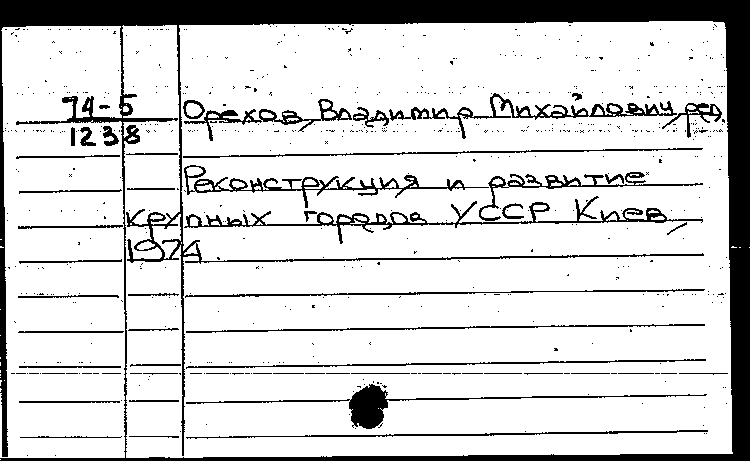 74-5 Орехов, Владимир Михайлович, ред.
1238
Реконструкция и развитие
крупных городов УССР Киев,
1974.